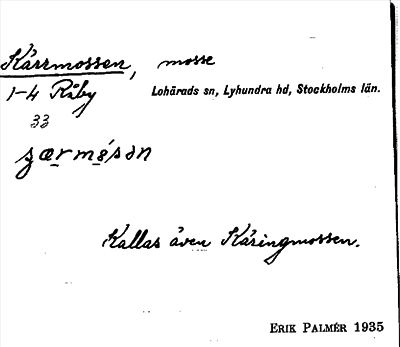 Kärrmossen, mosse
1-4 Råby Lohärads sn, Lyhundra hd, Stockholms län.
33
Kallas även Käringmossen.
ERIK PALMÉR 1935